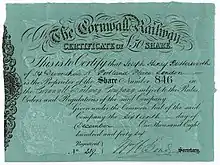 The Cornwall Railway
CERTIFICATE OF A SHARE.
This is to Certify that Joseph Henry Butterworth
of Devonshire Portland Place London
is the Proprietor of the Share Number 846 in the
Cornwall Railway Company subject to the Rules
Orders and Regulations of the said Company
Given under the Seal of the said Company
the day of
December One thousand Eight
hundred and forty
Registered
No. 249
Secretary